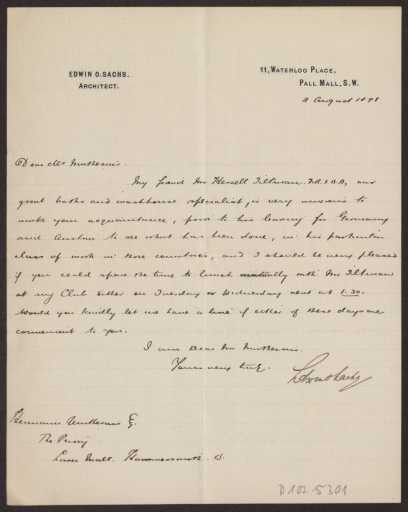 EDWIN O. SACHS,
ARCHITECT.
11, WATERLOO PLACE,
PALL MALL, S.W.
August 1898
Dear Mr Muthesius.
My friend Mr Hessell Tiltman. F.R.I.B.A., our
great baths and washhouse specialist, is very anxious to
make your acquaintance, prior to his leaving for Germany
and Austria to see what has been done, in his particular
class of work in these countries, and I should be very pleased
if you could spare the time to lunch with Mr Tiltman
at my Club either on Tuesday or Wednesday next at 1.30.
Would you kindly let us have a line if either of these days are
convenient to you.
I am Dear Mr Muthesius.
Yours very truly.
Edwin O Sachs
Hermann Muthesius Esq.
The Priory
Lower Mall. Hammersmith.
D 102-5301